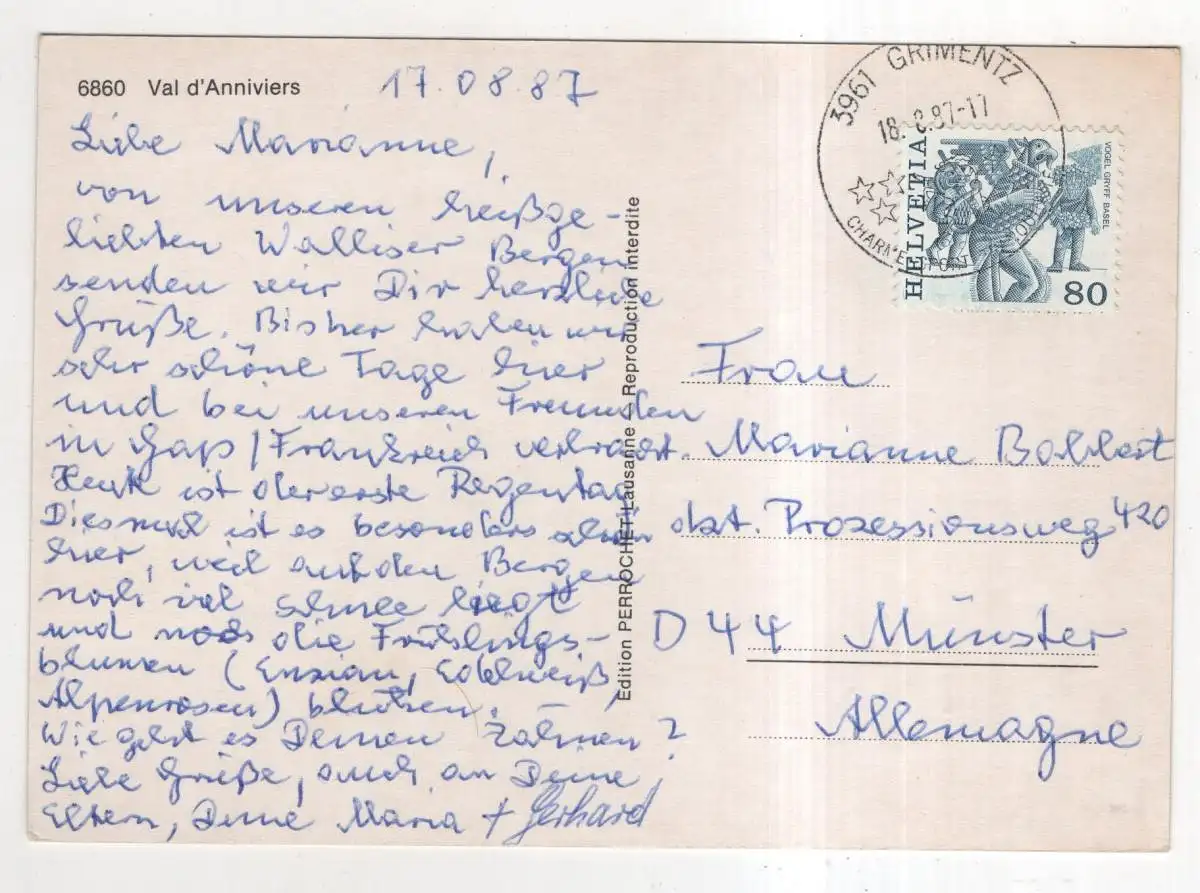 6860 Val d'Anniviers
17.08.87
Liebe Marianne,
von unseren heißge-
liebten Walliser Bergen
senden wir Dir herzliche
Grüße. Bisher haben wir
sehr schöne Tage hier
und bei unseren Freunden
in Gap/Frankreich verbracht.
Heute ist der erste Regentag
Diesmal ist es besonders schön
hier, weil auf den Bergen
noch viel Schnee liegt
und noch die Frühlings-
blumen (Enzian, Edelweiß,
Alpenrosen) blühen.
Wie geht es Deinen Zähnen?
Liebe Grüße, auch an Deine
Eltern, Deine Maria + Gerhard
Edition PERROCHET Lausanne – Reproduction interdite
3961 GRIMENTZ
18.8.87-17
CHARME
HELVETIA
VOGEL GRYFF BASEL
80
Frau
Marianne
dzt. Prozessionsweg 420
D 44 Münster
Allemagne